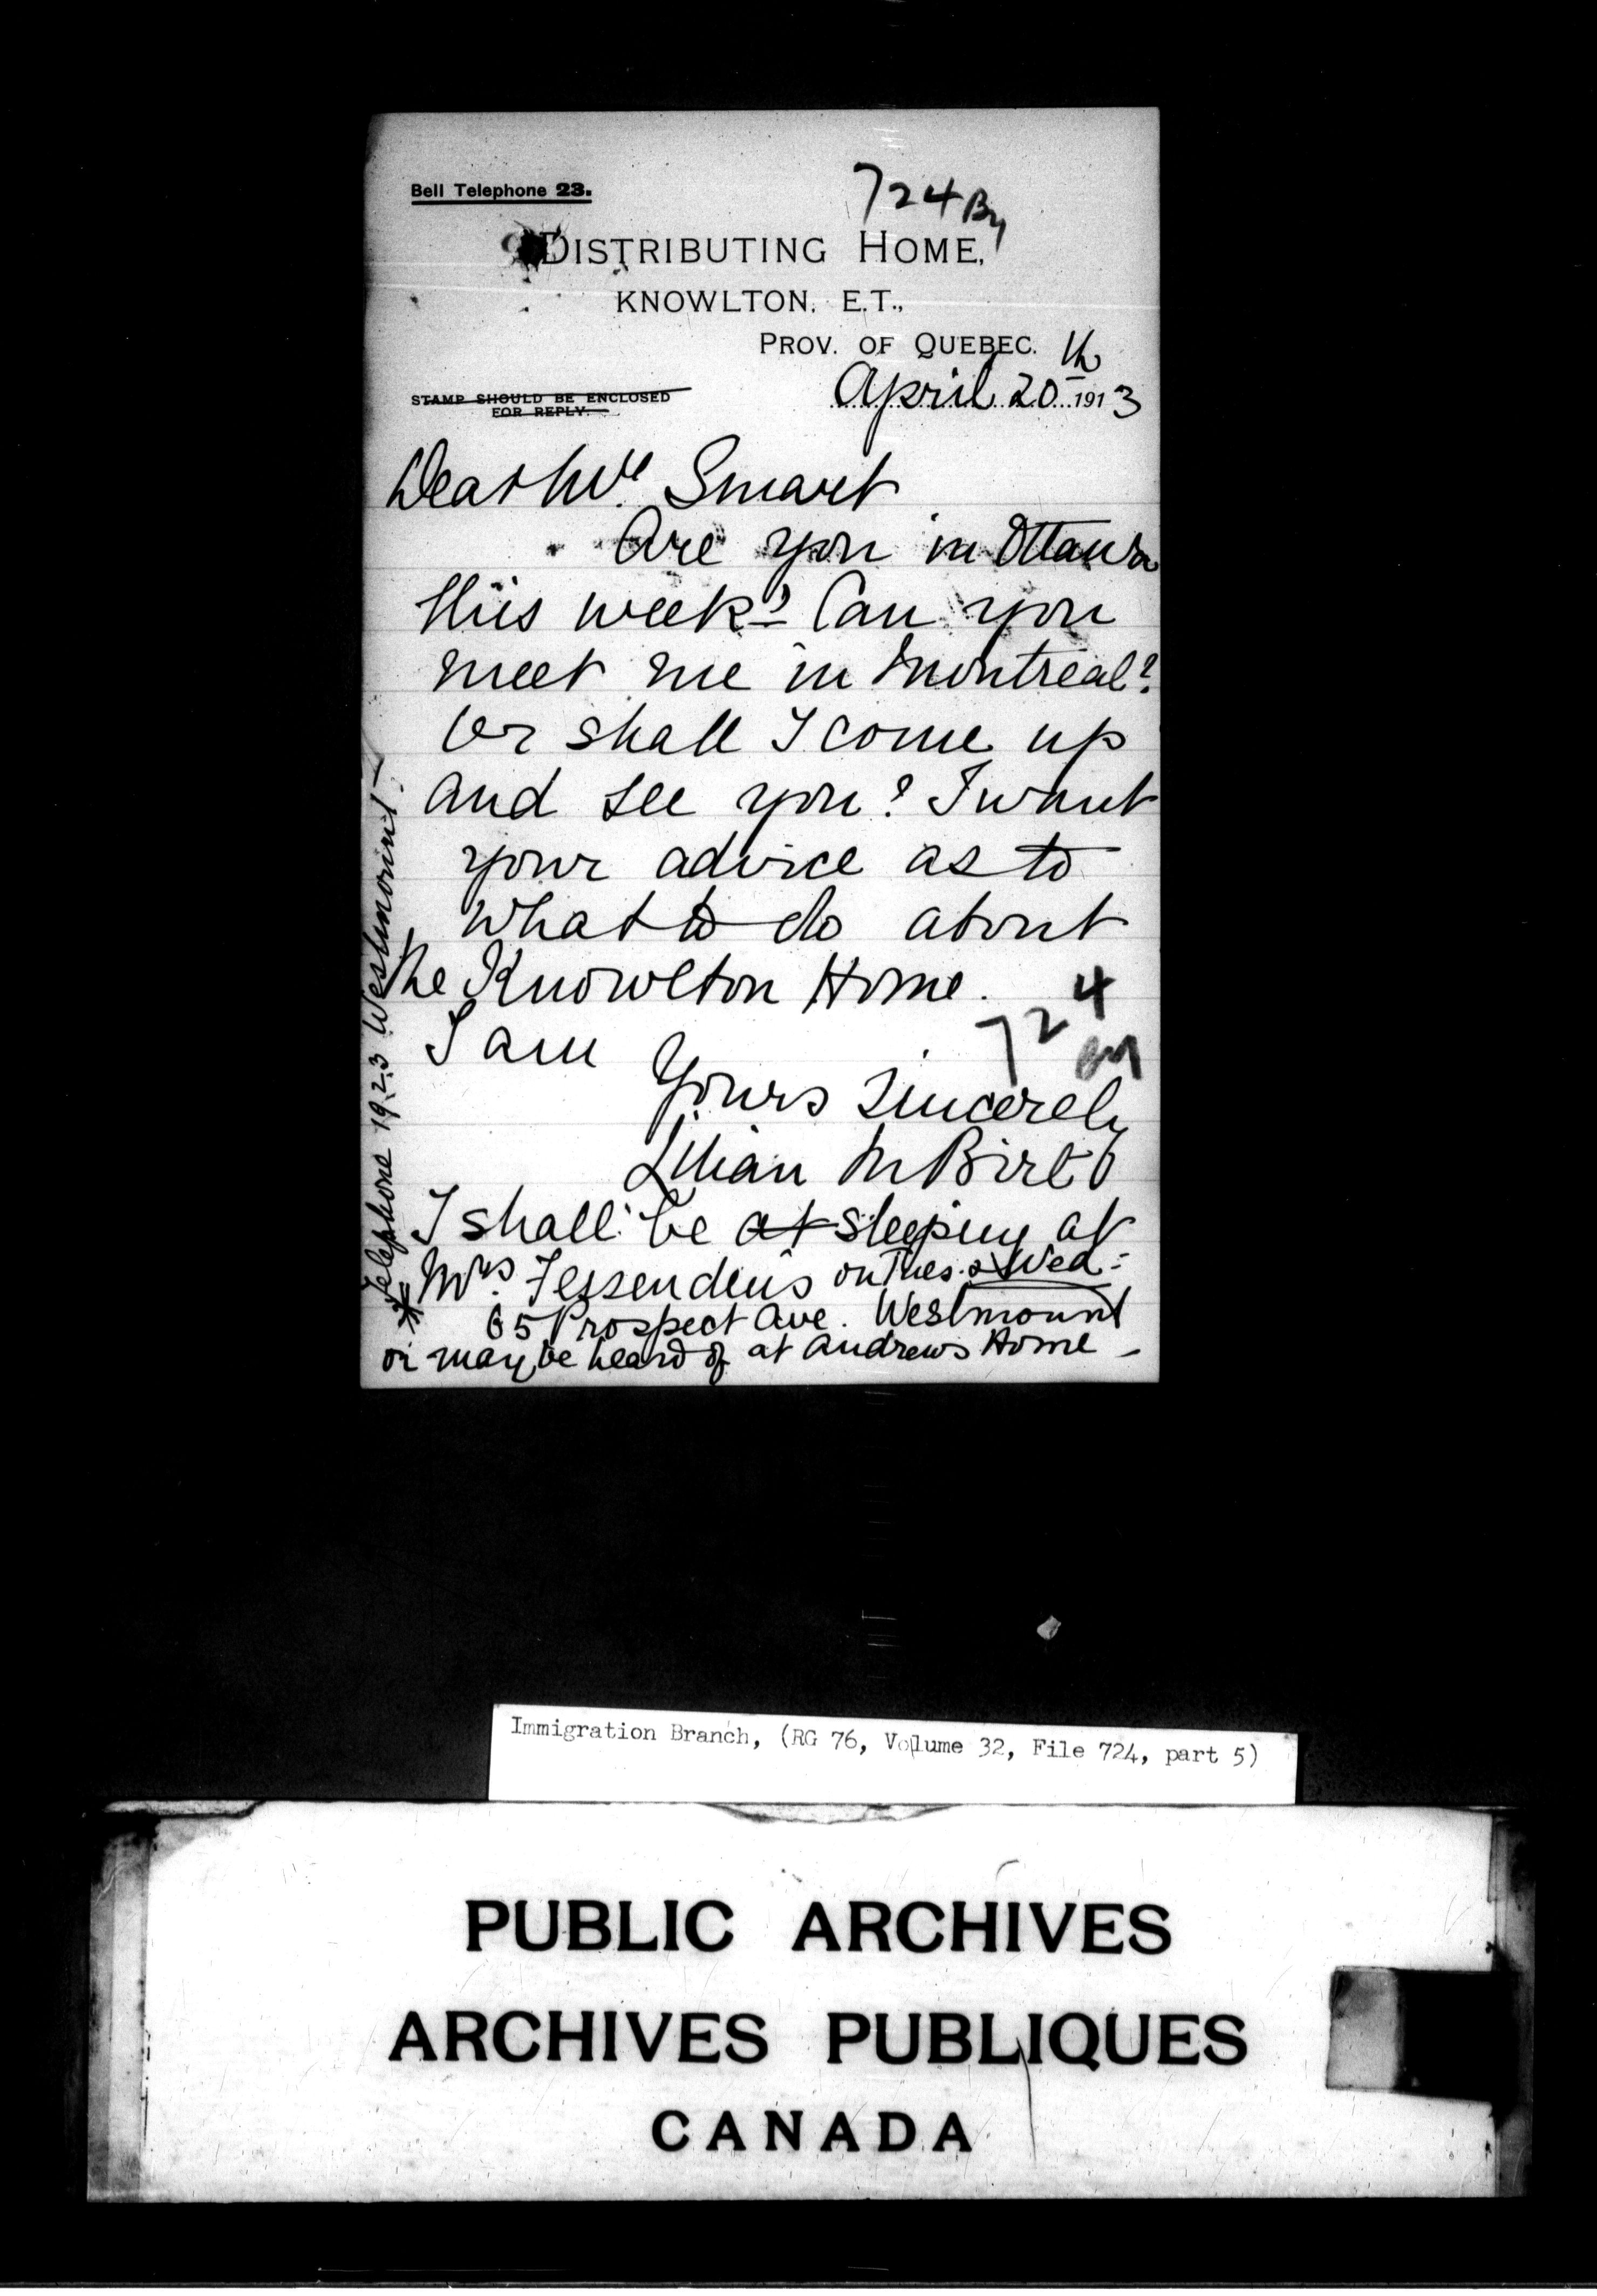 Bell Telephone 23.
724
DISTRIBUTING HOME,
KNOWLTON, E.T.,
PROV. OF QUEBEC.
STAMP SHOULD BE ENCLOSED
FOR REPLY.
April 20th 1913
Dear Mr. Smart
Are you in Ottawa
this week? Can you
meet me in Montreal?
Or shall I come up
and see you? I want
your advice as to
what to do about
the Knowlton Home.
I am
724
Yours Sincerely
Lilian M Birt
I shall be at sleeping at
Mrs. Fessenden's on Tues. & Wed:
65 Prospect Ave. Westmount
or may be heard of at Andrews Home –
* Telephone 19.23 Westmount.
Immigration Branch, (RG 76, Volume 32, File 724, part 5)
PUBLIC ARCHIVES
ARCHIVES PUBLIQUES
CANADA